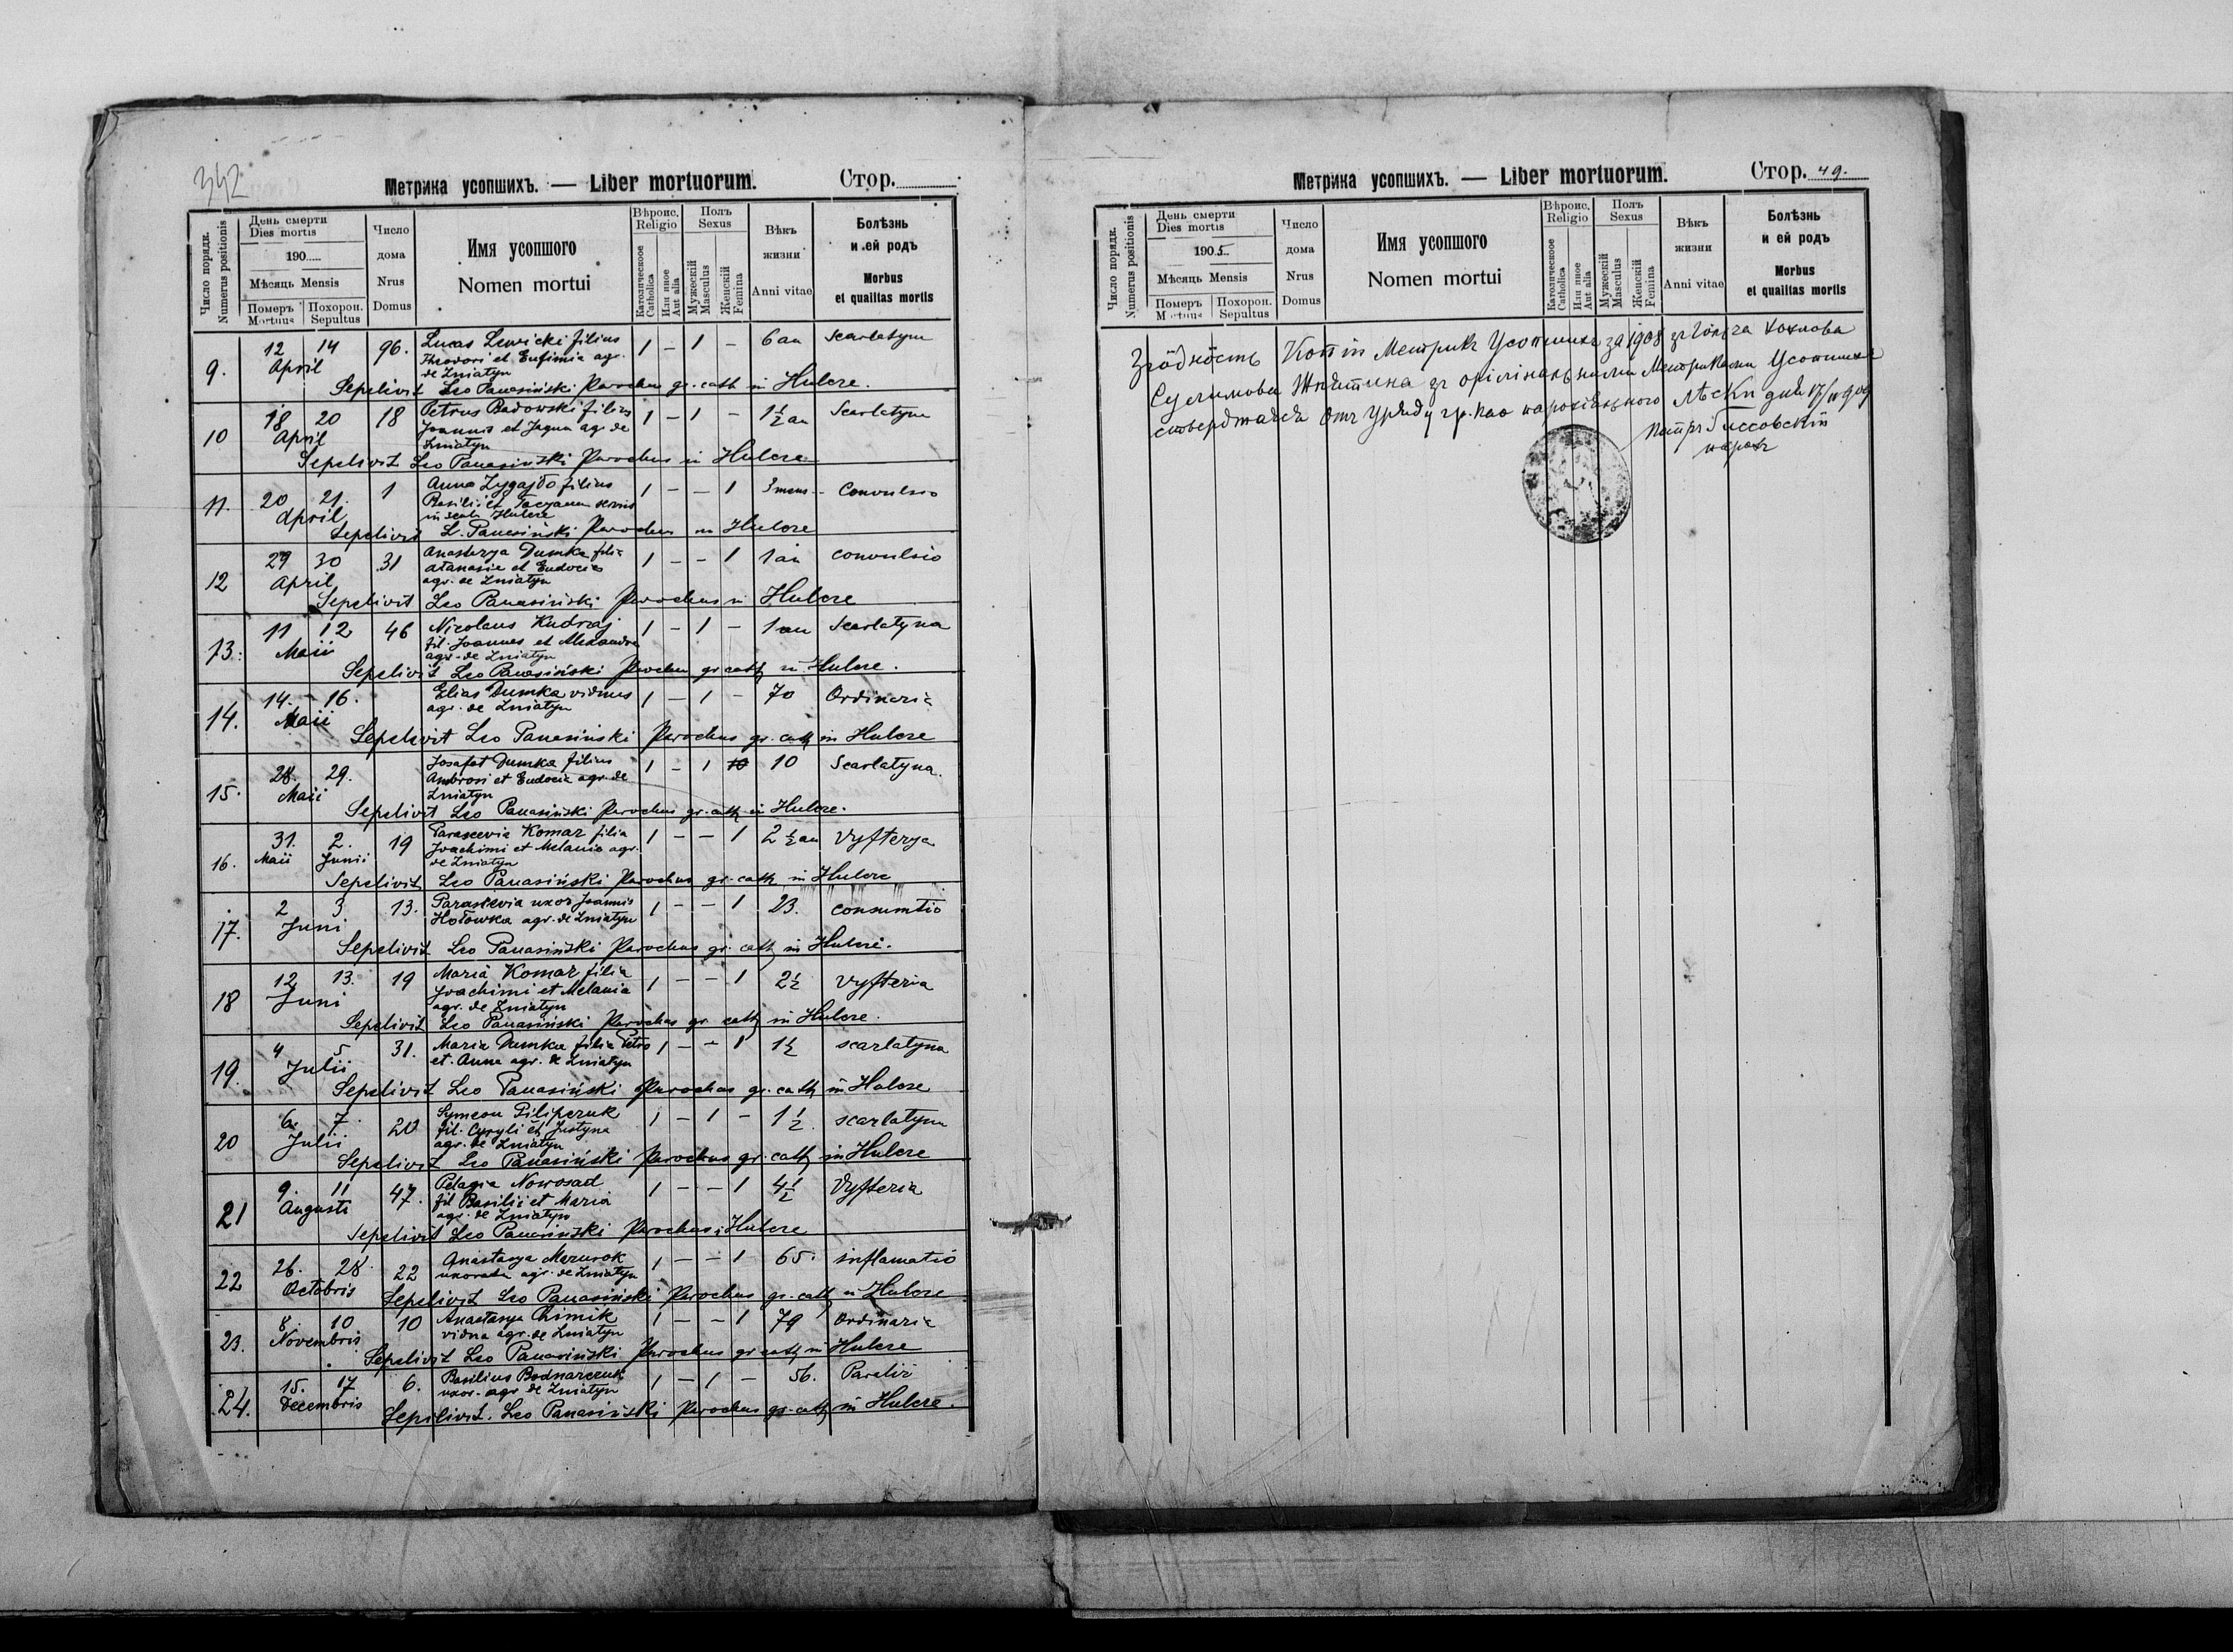 342
Метрика усопшихъ. — Liber mortuorum. Стор.
Число порядк. Numerus positionis
День смерти
Dies mortis
190
Мѣсяць Mensis
Померъ Mortuus
Похорон. Sepultus
Число дома Nrus Domus
Имя усопшого
Nomen mortui
Вѣроис. Religio
Католическое Catholica
Или иное Aut alia
Полъ Sexus
Мужескій Masculus
Женскій Femina
Вѣкъ жизни Anni vitae
Болѣзнь и ей родъ
Morbus et qualitas mortis
9. 12 14 April 96. Lucas Lewicki filius 1 – 1 – 6 an Scarlatyna
Theodori et Eufimia agr.
de Zniatyn
Sepelivit Leo Panasiński Parochus gr. cath in Hulcze.
10 18 20 April 18 Petrus Badowski filius 1 – 1 – 1½ an Scarlatyna
Joannis et agr. de
Zniatyn
Sepelivit Leo Panasiński Parochus in Hulcze
11. 20 21. April 1 Anna Zygajdo filius 1 – – 1 3 mens Convulsio
Basilii et
Hulcze
Sepelivit L. Panasiński Parochus in Hulcze
12 29 30 April 31 Anasterya Dumka filia 1 – – 1 1 an convulsio
Atanasie et Eudocies
agr. de Zniatyn
Sepelivit Leo Panasiński Parochus in Hulcze
13. 11 12 Maii 46 Nicolaus Kudraj 1 – 1 – 1 an Scarlatyna
fil. Joannes et Alexandra
agr. de Zniatyn
Sepelivit Leo Panasiński Parochus gr. cath in Hulcze.
14. 14. – 16. Maii Elias Dumka viduus 1 – 1 – 70 Ordinaria
agr. de Zniatyn
Sepelivit Leo Panasiński Parochus gr. cath in Hulcze
15. 28. 29. Maii Josafat Dumka filius 1 – 1 10 10 Scarlatyna.
Ambrosi et Eudocia agr. de
Zniatyn
Sepelivit Leo Panasiński Parochus gr. cath in Hulcze.
16. 31. Maii 2. Junii 19 Parascevia Komar filia 1 – – 1 2 ½ an Dyfterya
Joachimi et Melania agr.
de Zniatyn
Sepelivit Leo Panasiński Parochus gr. cath in Hulcze
17. 2 3 Juni 13. Paraskevia uxor Joannis 1 – – 1 23. consumtio
Hołowka agr. de Zniatyn
Sepelivit Leo Panasiński Parochus gr. cath in Hulcze.
18 12 13. Juni 19 Maria Komar filia 1 – – 1 2½ Dyfteria
Joachimi et Melania
agr. de Zniatyn
Sepelivit Leo Panasiński Parochus gr. cath in Hulcze.
19. 4 5 Julii 31. Maria Dumka filia Petro 1 – – 1 1½ scarlatyna
et Anna agr. de Zniatyn
Sepelivit Leo Panasiński Parochus gr. cath in Hulcze
20 6. 7 Julii 20 Symeon Pilipczuk 1 – 1 – 1½ scarlatyna
fil. Cyryli et Justyna
agr. de Zniatyn
Sepelivit Leo Panasiński Parochus gr. cath in Hulcze
21 9. 11 Augusti 47. Pelagia Nowosad 1 – – 1 4½ Dyfteria
fil Basilii et Maria
agr. de Zniatyn
Sepelivit Leo Panasiński Parochus i Hulcze
22 26. 28. Octobris 22 Anastazya Mazurok 1 – – 1 65. inflamatio
uxorata agr. de Zniatyn
Sepelivit Leo Panasiński Parochus gr. cath in Hulcze
23. 8. 10 Novembris 10 Anastazya Chimik 1 – – 1 79 Ordinaria
vidua agr. de Zniatyn
Sepelivit Leo Panasiński Parochus gr cath in Hulcze
24. 15. 17 Decembris 6. Basilius Bodnarczuk 1 – 1 – 56. Paraliz
uxor. agr de Zniatyn
Sepelivit. Leo Panasiński Parochus gr. cath in Hulcze.
Метрика усопшихъ. — Liber mortuorum. Стор. 49.
Число порядк. Numerus positionis
День смерти
Dies mortis
1905
Мѣсяць Mensis
Померъ Mortuus
Похорон. Sepultus
Число дома Nrus Domus
Имя усопшого
Nomen mortui
Вѣроис. Religio
Католическое Catholica
Или иное Aut alia
Полъ Sexus
Мужескій Masculus
Женскій Femina
Вѣкъ жизни Anni vitae
Болѣзнь и ей родъ
Morbus et qualitas mortis
Згôдность Копіи Метрикъ Усопшихъ за 1908 зъ Гôльча Хохлова
Сулимова Жнятина зъ оріґінальными Метриками Усопшихъ
стверджаєся отъ Уряду гр. парохіяльного дня 17/II 909
Петръ
парохъ